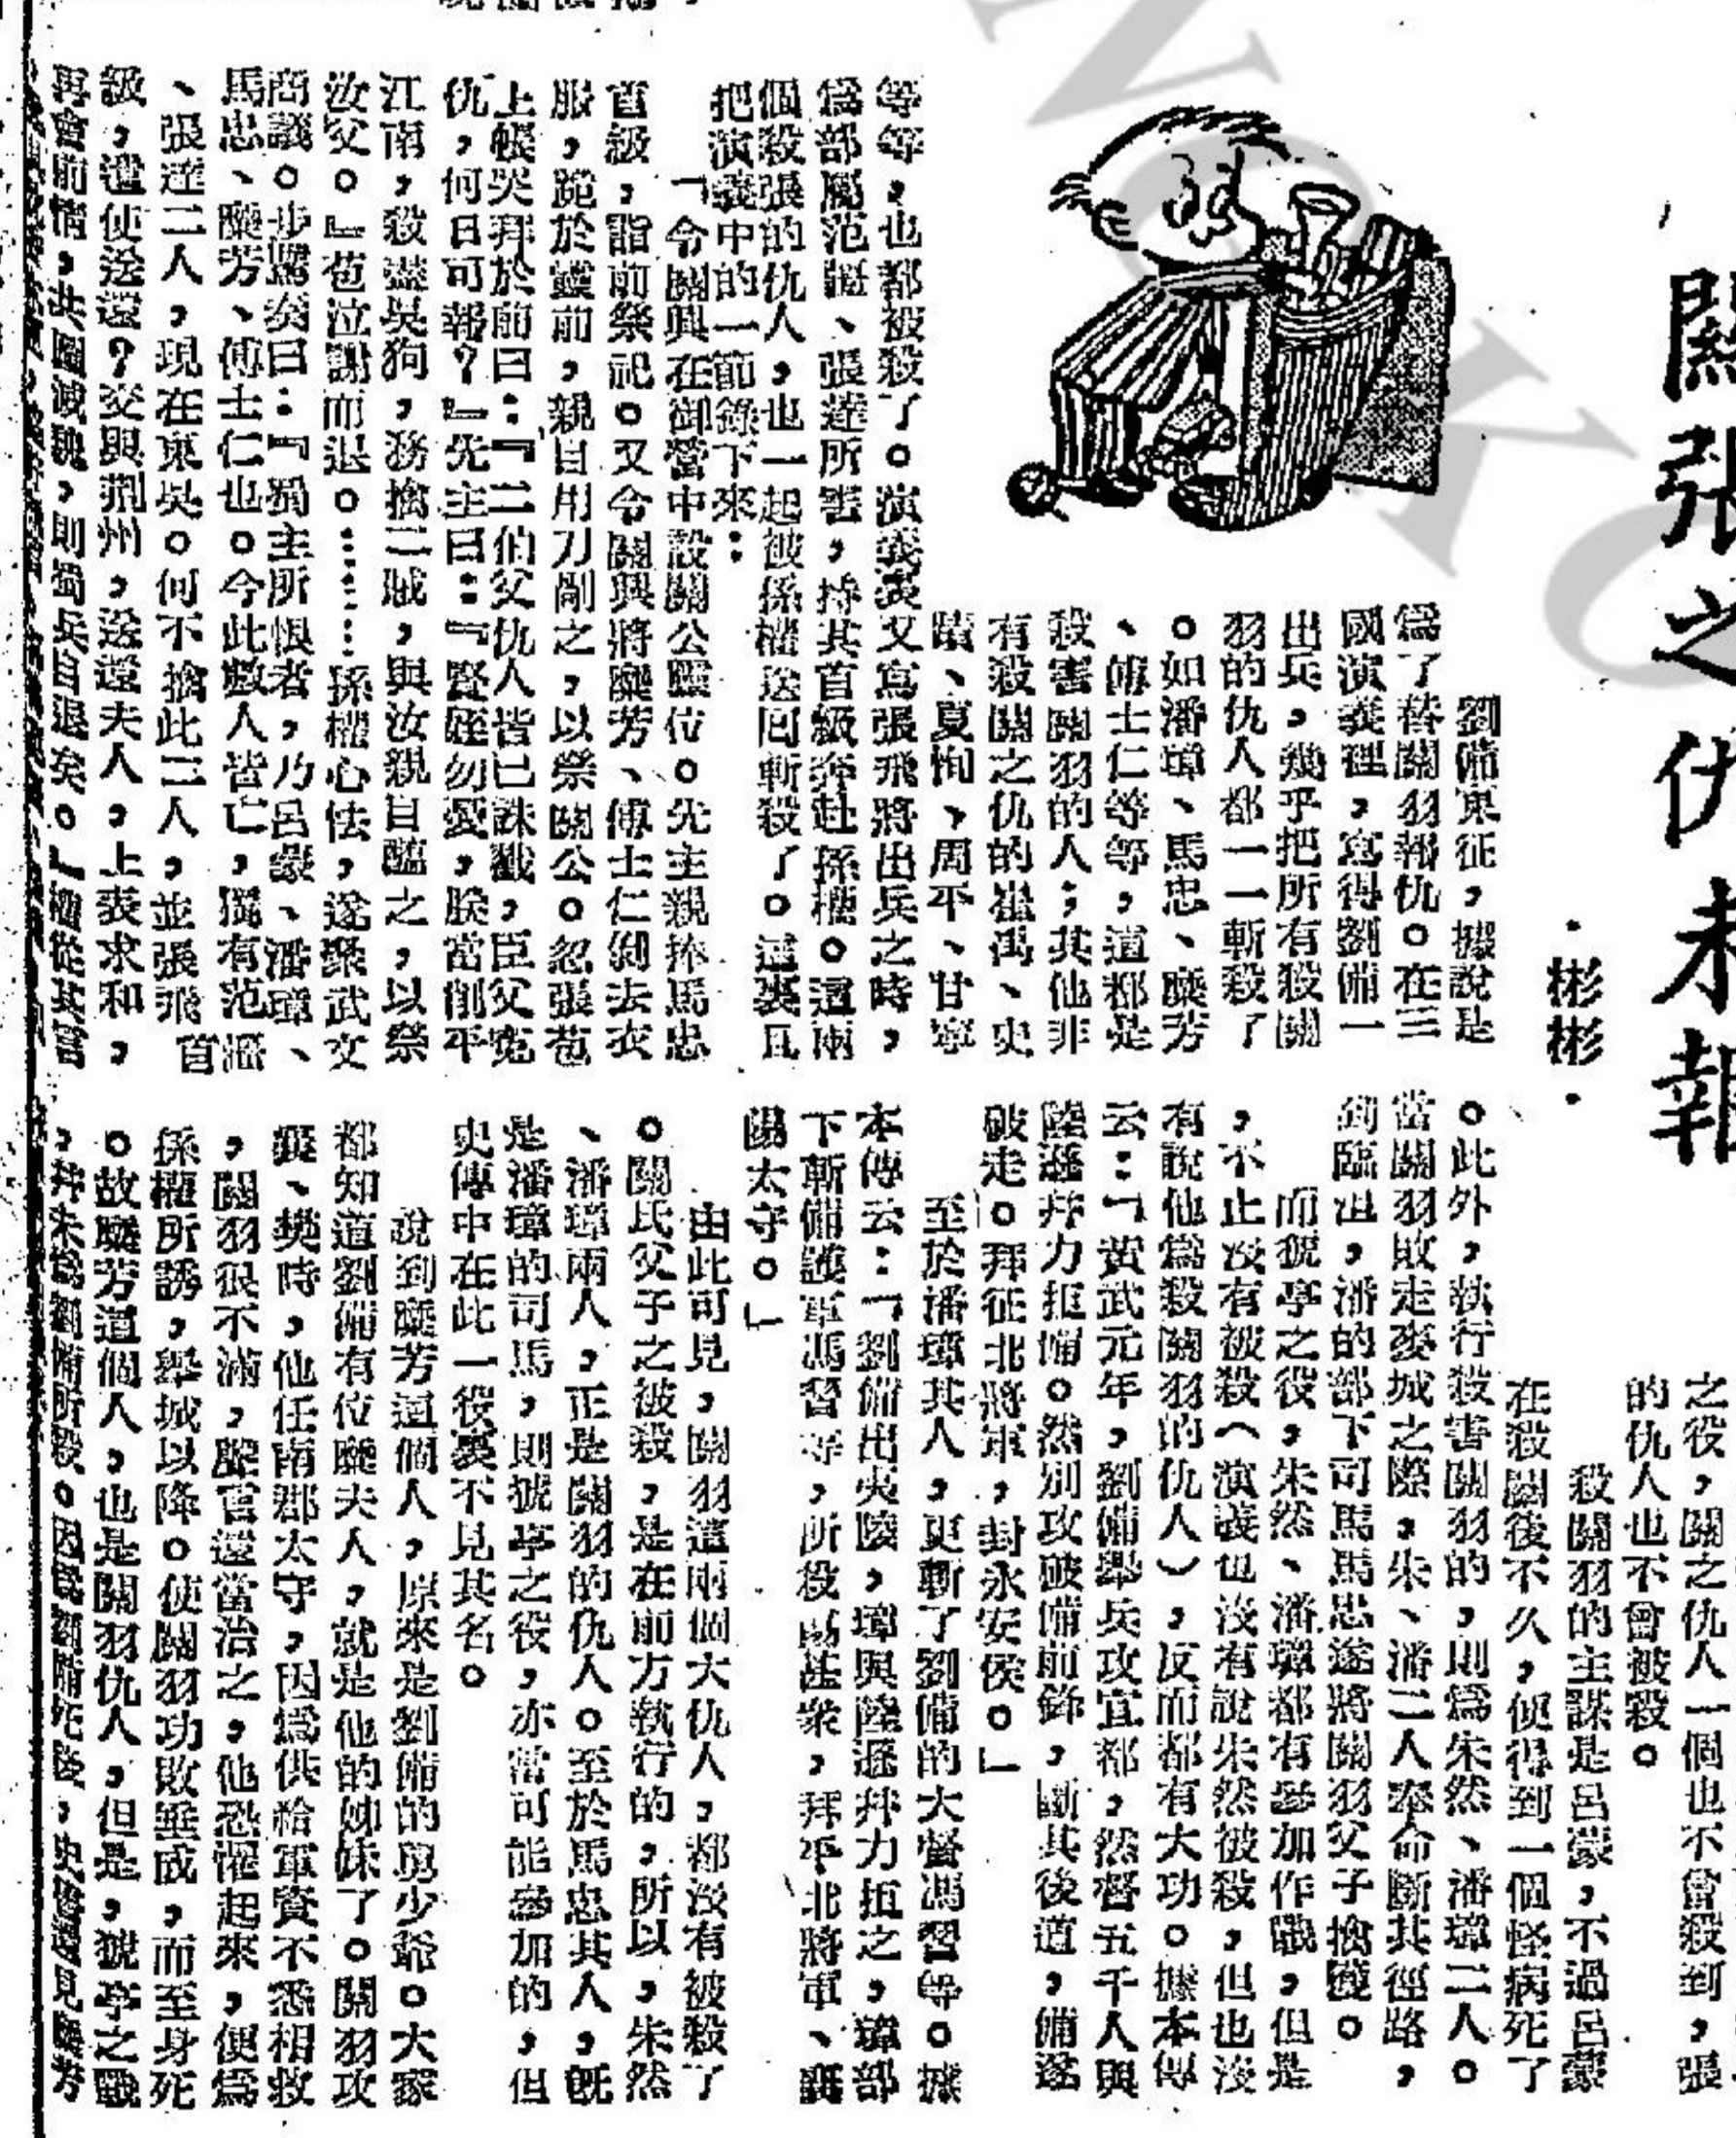 關張之仇未報
·彬彬·
劉備東征，據說是
爲了替關羽報仇。在三
國演義裡，寫得劉備一
出兵，幾乎把所有殺關
羽的仇人都一一斬殺了
。如潘璋、馬忠、糜芳
、傅士仁等等，這都是
殺害關羽的人；其他非
有殺關之仇的崔禹、史
蹟、夏恂、周平、甘寧
等等，也都被殺了。演義裏又寫張飛將出兵之時，
爲部屬范疆、張達所害，持其首級奔赴孫權。這兩
個殺張的仇人，也一起被孫權送囘斬殺了。這裏且
把演義中的一節錄下來：
「令關興在御營中設關公靈位。先主親捧馬忠
首級，詣前祭祀。又令關興將糜芳、傅士仁剝去衣
服，跪於靈前，親自用刀剮之，以祭關公。忽張苞
上帳哭拜於前曰：『二伯父仇人皆已誅戮，臣父寃
仇，何日可報？』先主曰：『賢姪勿憂，朕當削平
江南，殺盡吳狗，務擒二賊，與汝親自醢之，以祭
汝父。』苞泣謝而退。……孫權心怯，遂聚武文
商議。步騭奏曰：『蜀主所恨者，乃呂蒙、潘璋、
馬忠、糜芳、傅士仁也。今此數人皆亡，獨有范疆
、張達二人，現在東吳。何不擒此二人，並張飛首
級，遣使送還？交與荊州，送還夫人，上表求和，
再會前情，共圖滅魏，則蜀兵自退矣。』權從其言
之役，關之仇人一個也不曾殺到，張
的仇人也不曾被殺。
殺關羽的主謀是呂蒙，不過呂蒙
在殺關後不久，便得到一個怪病死了
。此外，執行殺害關羽的，則爲朱然、潘璋二人。
當關羽敗走麥城之際，朱、潘二人奉命斷其徑路，
到臨沮，潘的部下司馬馬忠遂將關羽父子擒獲。
而猇亭之役，朱然、潘璋都有參加作戰，但是
，不止沒有被殺（演義也沒有說朱然被殺，但也沒
有說他爲殺關羽的仇人），反而都有大功。據本傳
云：「黃武元年，劉備舉兵攻宜都，然督五千人與
陸遜幷力拒備。然別攻破備前鋒，斷其後道，備遂
破走。拜征北將軍，封永安侯。」
至於潘璋其人，更斬了劉備的大督馮習等。據
本傳云：「劉備出夷陵，璋與陸遜幷力拒之，璋部
下斬備護軍馮習等，所殺傷甚衆，拜平北將軍、襄
陽太守。」
由此可見，關羽這兩個大仇人，都沒有被殺了
。關氏父子之被殺，是在前方執行的，所以，朱然
、潘璋兩人，正是關羽的仇人。至於馬忠其人，旣
是潘璋的司馬，則猇亭之役，亦當可能參加的，但
史傳中在此一役裏不見其名。
說到糜芳這個人，原來是劉備的舅少爺。大家
都知道劉備有位糜夫人，就是他的姊妹了。關羽攻
襄、樊時，他任南郡太守，因爲供給軍資不悉相救
，關羽很不滿，聲言還當治之，他恐懼起來，便爲
孫權所誘，舉城以降。使關羽功敗垂成，而至身死
。故糜芳這個人，也是關羽仇人，但是，猇亭之戰
，幷未爲劉備所殺。因爲劉備死後，史書還見糜芳